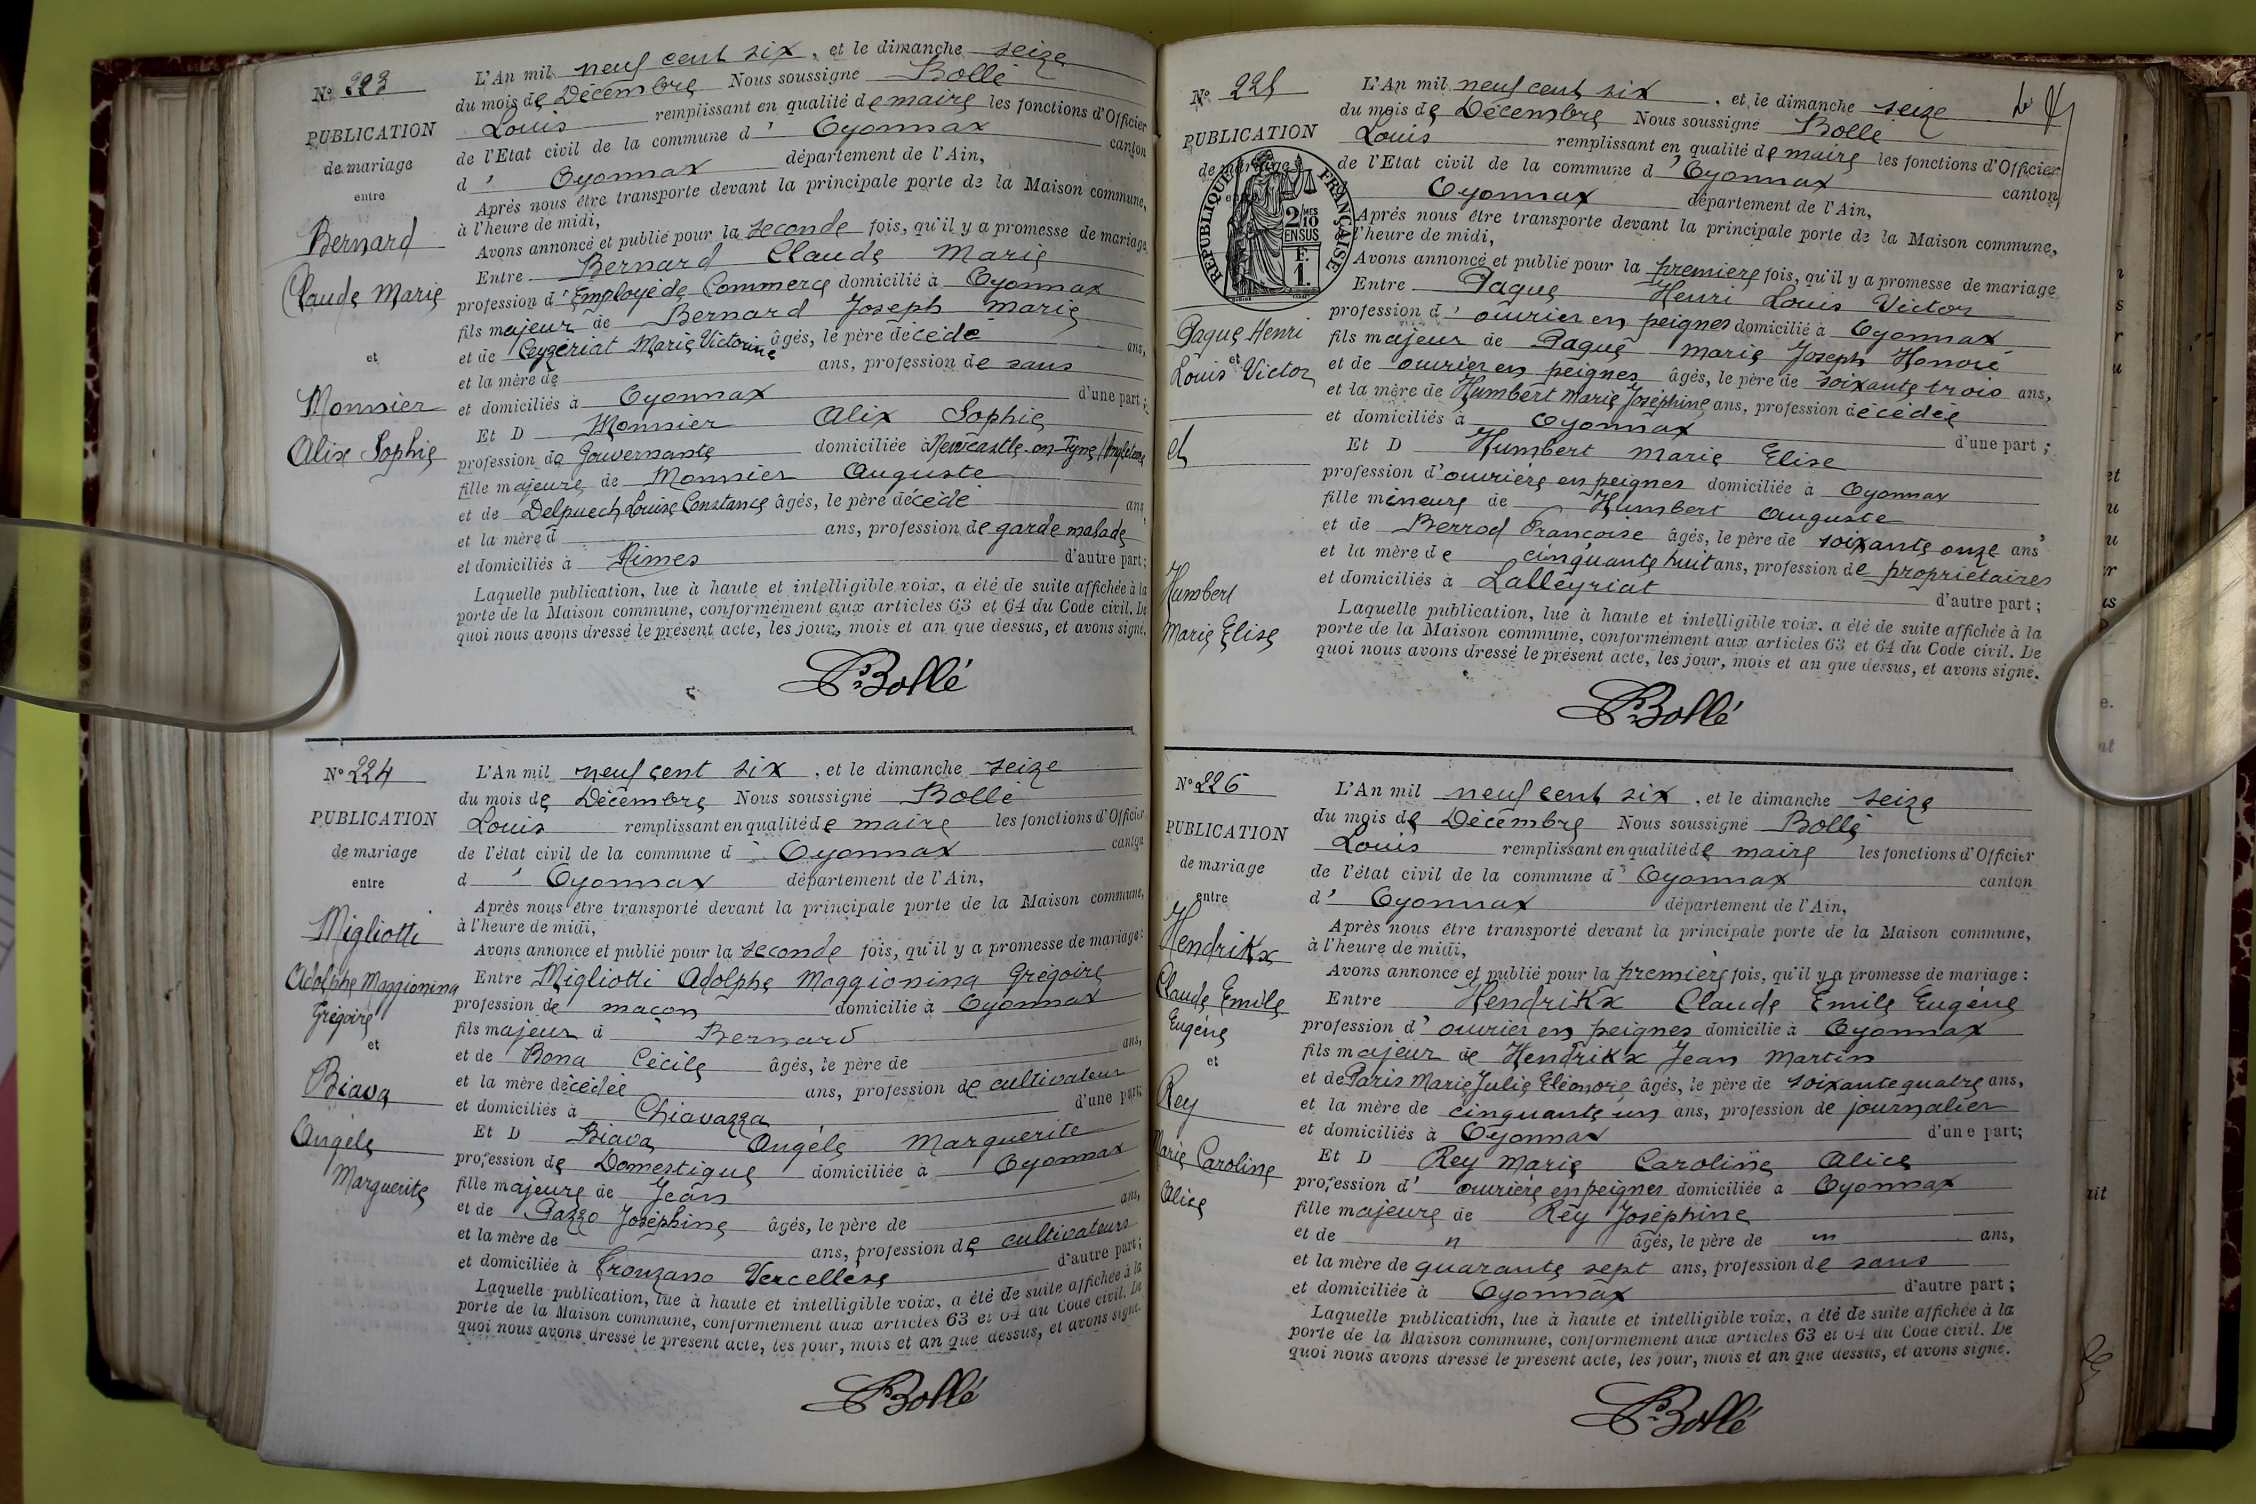 Nº 223
PUBLICATION
de mariage
entre
Bernard
Claude Marie
et
Monnier
Alix Sophie
L'An mil neuf cent six, et le dimanche seize
du mois de Décembre Nous soussigné Bollé
Louis remplissant en qualité de maire les fonctions d'Officier
de l'Etat civil de la commune d' Oyonnax canton
d' Oyonnax département de l'Ain,
Après nous être transporté devant la principale porte de la Maison commune,
à l'heure de midi,
Avons annoncé et publié pour la seconde fois, qu'il y a promesse de mariage
Entre Bernard Claude Marie
profession d' Employé de Commerce domicilié à Oyonnax
fils majeur de Bernard Joseph Marie
et de Ceyzériat Marie Victorine âgés, le père décédé ans,
et la mère de ans, profession de sans
et domiciliés à Oyonnax d'une part ;
Et D Monnier Alix Sophie
profession de Gouvernante domiciliée à Newcastle-on-Tyne (Angleterre
fille majeure de Monnier Auguste
et de Delpuech Louise Constance âgés, le père décédé ans,
et la mère d ans, profession de garde malade
et domiciliés à Nimes d'autre part ;
Laquelle publication, lue à haute et intelligible voix, a été de suite affichée à la
porte de la Maison commune, conformément aux articles 63 et 64 du Code civil. De
quoi nous avons dressé le présent acte, les jour, mois et an que dessus, et avons signé.
L. Bollé
Nº 224
PUBLICATION
de mariage
entre
Migliotti
Adolphe Maggionina
Grégoire
et
Biava
Angèle
Marguerite
L'An mil neuf cent six, et le dimanche seize
du mois de Décembre Nous soussigné Bollé
Louis remplissant en qualité de maire les fonctions d'Officier
de l'état civil de la commune d' Oyonnax canton
d' Oyonnax département de l'Ain,
Après nous être transporté devant la principale porte de la Maison commune,
à l'heure de midi,
Avons annoncé et publié pour la seconde fois, qu'il y a promesse de mariage :
Entre Migliotti Adolphe Maggionina Grégoire
profession de maçon domicilié à Oyonnax
fils majeur d Bernard
et de Bona Cécile âgés, le père de ans,
et la mère décédée ans, profession de cultivateur
et domiciliés à Chiavazza d'une part;
Et D Biava Angèle Marguerite
profession de Domestique domiciliée à Oyonnax
fille majeure de Jean
et de Pazzo Joséphine âgés, le père de ans,
et la mère de ans, profession de cultivateurs
et domiciliée à Cronzano Vercellese d'autre part ;
Laquelle publication, lue à haute et intelligible voix, a été de suite affichée à la
porte de la Maison commune, conformément aux articles 63 et 64 du Code civil. De
quoi nous avons dressé le présent acte, les jour, mois et an que dessus, et avons signé.
L. Bollé
Nº 225
PUBLICATION
de mariage
entre
RÉPUBLIQUE FRANÇAISE
2/10MES
EN SUS
F.
1.
Pague Henri
et
Louis Victor
et
Humbert
Marie Elise
L'An mil neuf cent six, et le dimanche seize
du mois de Décembre Nous soussigné Bollé
Louis remplissant en qualité de maire les fonctions d'Officier
de l'Etat civil de la commune d' Oyonnax canton
Oyonnax département de l'Ain,
Après nous être transporté devant la principale porte de la Maison commune,
l'heure de midi,
Avons annoncé et publié pour la première fois, qu'il y a promesse de mariage
Entre Pague Henri Louis Victor
profession d' ouvrier en peignes domicilié à Oyonnax
fils majeur de Pague Marie Joseph Honoré
et de ouvrier en peignes âgés, le père de soixante trois ans,
et la mère de Humbert Marie Joséphine ans, profession décédée
et domiciliés à Oyonnax d'une part ;
Et D Humbert Marie Elise
profession d'ouvrière en peignes domiciliée à Oyonnax
fille mineure de Humbert Auguste
et de Berrod Françoise âgés, le père de soixante onze ans
et la mère de cinquante huit ans, profession de propriétaires
et domiciliés à Lalleyriat d'autre part ;
Laquelle publication, lue à haute et intelligible voix, a été de suite affichée à la
porte de la Maison commune, conformément aux articles 63 et 64 du Code civil. De
quoi nous avons dressé le présent acte, les jour, mois et an que dessus, et avons signé.
L. Bollé
Nº 226
PUBLICATION
de mariage
entre
Hendrikx
Claude Emile
Eugène
et
Rey
Marie Caroline
Alice
L'An mil neuf cent six, et le dimanche seize
du mois de Décembre Nous soussigné Bollé
Louis remplissant en qualité de maire les fonctions d'Officier
de l'état civil de la commune d' Oyonnax canton
d' Oyonnax département de l'Ain,
Après nous être transporté devant la principale porte de la Maison commune,
à l'heure de midi,
Avons annoncé et publié pour la première fois, qu'il y a promesse de mariage :
Entre Hendrikx Claude Emile Eugène
profession d' ouvrier en peignes domicilié à Oyonnax
fils majeur de Hendrikx Jean Martin
et de Paris Marie Julie Eléonore âgés, le père de soixante quatre ans,
et la mère de cinquante un ans, profession de journalier
et domiciliés à Oyonnax d'une part;
Et D Rey Marie Caroline Alice
profession d' ouvrière en peignes domiciliée à Oyonnax
fille majeure de Rey Joséphine
et de " âgés, le père de " ans,
et la mère de quarante sept ans, profession de sans
et domiciliée à Oyonnax d'autre part ;
Laquelle publication, lue à haute et intelligible voix, a été de suite affichée à la
porte de la Maison commune, conformément aux articles 63 et 64 du Code civil. De
quoi nous avons dressé le présent acte, les jour, mois et an que dessus, et avons signé.
L. Bollé